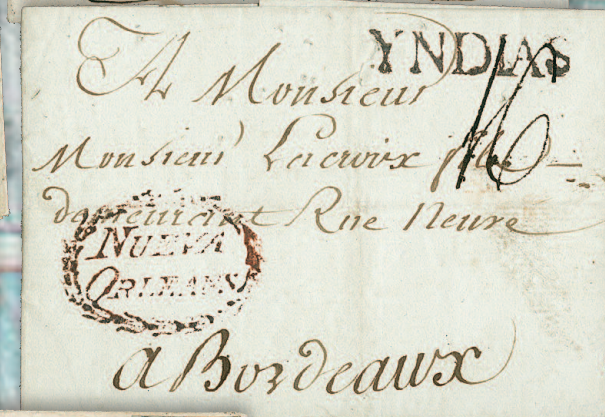 YNDIAS
A Monsieur
16
Monsieur Lacroix
demeurant Rue Neuve
NUEVA
ORLEANS
a Bordeaux